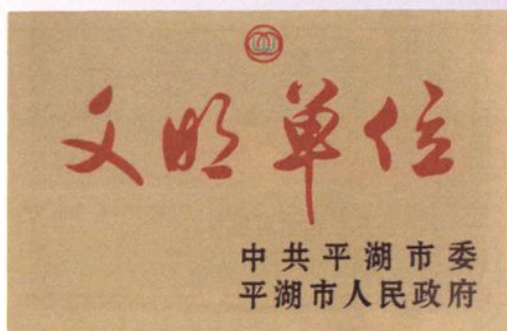 文明单位
中共平湖市委
平湖市人民政府